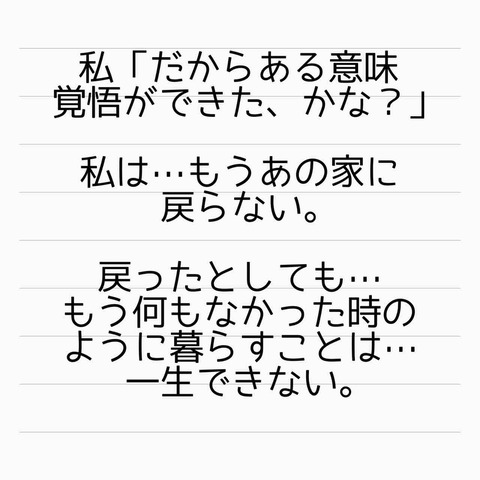 私「だからある意味
覚悟ができた、かな？」
私は…もうあの家に
戻らない。
戻ったとしても…
もう何もなかった時の
ように暮らすことは…
一生できない。